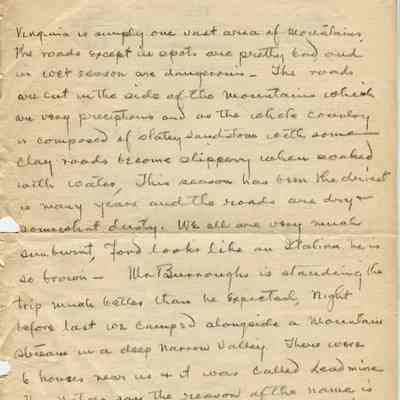 Virginia is simply one vast area of mountains.
The roads except in spots are pretty bad and
in wet season are dangerous - The roads
are cut in the side of the mountains which
are very precipitous and as the whole country
is composed of slatey sandstone with some
clay roads become slippery when soaked
with water, This season has been the driest
in many years and the roads are dry -
somewhat dusty. We all are very much
sunburnt, Ford looks like an Italian he is
so brown - Mr Burroughs is standing the
trip much better than he expected, Night
before last we camped alongside a mountain
stream in a deep narrow valley There were
6 houses near us & it was called Leadmine
say the reason of the name is